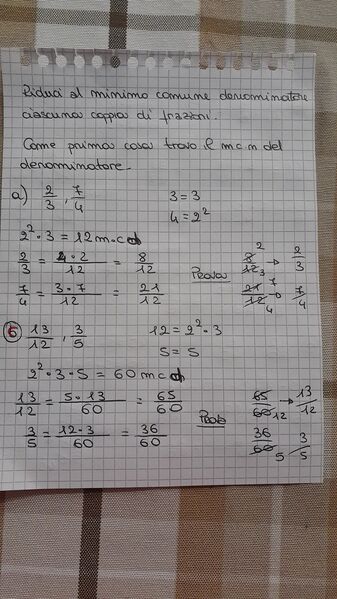 Riduci al minimo comune denominatore
ciascuna coppia di frazioni.
Come prima cosa trovo il m.c.m del
denominatore.
a) 2/3 , 7/4 3 = 3
4 = 2²
2² • 3 = 12 m.c.d
2/3 = 4 • 2/12 = 8/12 Prova 8/12 2 3 → 2/3
7/4 = 3 • 7/12 = 21/12 21/12 7 4 → 7/4
b) 13/12 , 3/5 12 = 2² • 3
5 = 5
2² • 3 • 5 = 60 m c d
13/12 = 5 • 13/60 = 65/60 65/60 12 → 13/12
3/5 = 12 • 3/60 = 36/60 36/60 5 3/5